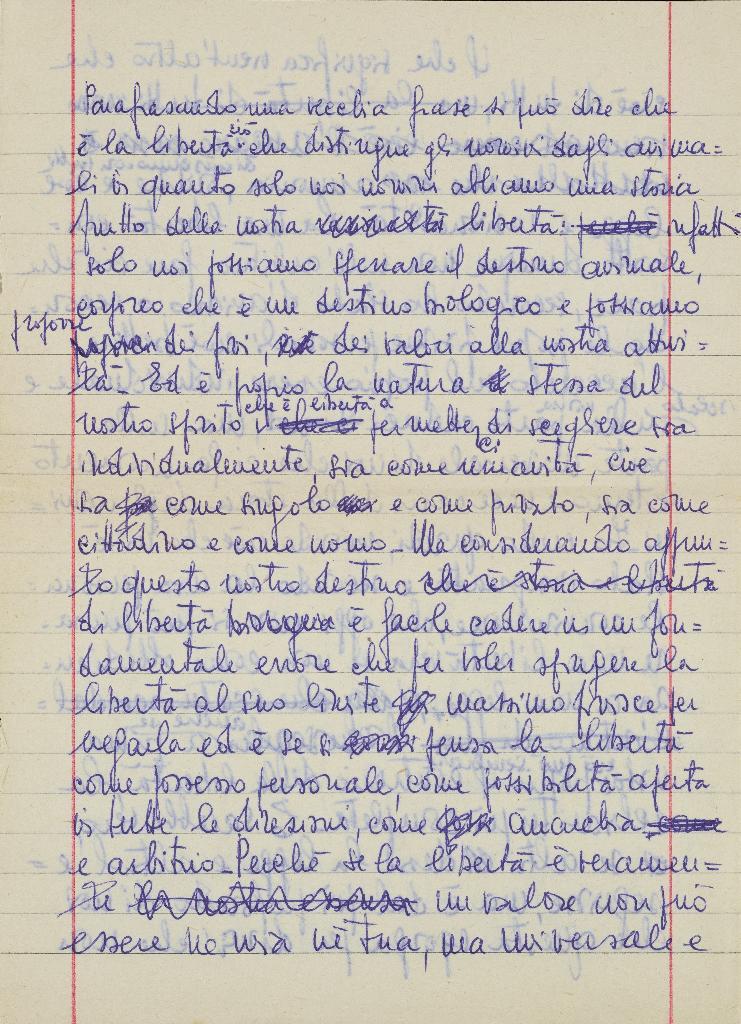 Parafrasando una vecchia frase si può dire che
è la libertà ciò che distingue gli uomini dagli anima=
li in quanto solo noi uomini abbiamo una storia
frutto della nostra libertà: perchè infatti
solo noi possiamo spezzare il destino animale,
corporeo che è un destino biologico e possiamo
proporre dei fini, dei valori alla nostra attivi=
tà - Ed è proprio la natura stessa del
nostro spirito che è libertà a che ci permetterci di scegliere sia
individualmente, sia come umanità, cioè
sia come singolo e come privato, sia come
cittadino e come uomo - Ma considerando appun=
to questo nostro destino che è storia e libertà
di libertà bisogna è facile cadere in un fon=
damentale errore che per voler spingere la
libertà al suo limite massimo finisce per
negarla ed è se si pensa la libertà
come possesso personale, come possibilità aperta
in tutte le direzioni, come anarchia come
e arbitrio - Perchè se la libertà è veramen=
te la nostra essenza un valore non può
essere nè mia nè tua, ma universale e